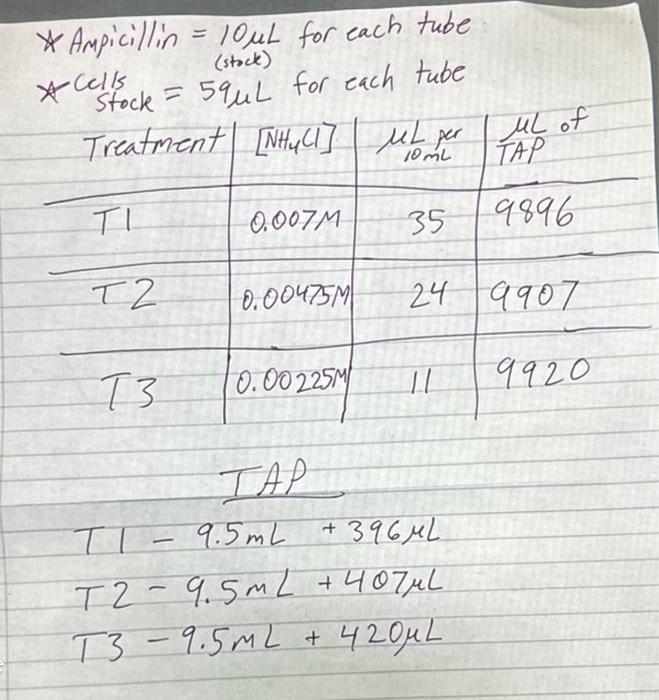 * Ampicillin = 10μL for each tube
(stock)
* Cells
Stock = 59μL for each tube
Treatment | [NH4Cl] | μL per 10mL | μL of TAP
T1 | 0.007M | 35 | 9896
T2 | 0.00475M | 24 | 9907
T3 | 0.00225M | 11 | 9920
TAP
T1 - 9.5mL + 396μL
T2 - 9.5mL + 407μL
T3 - 9.5mL + 420μL